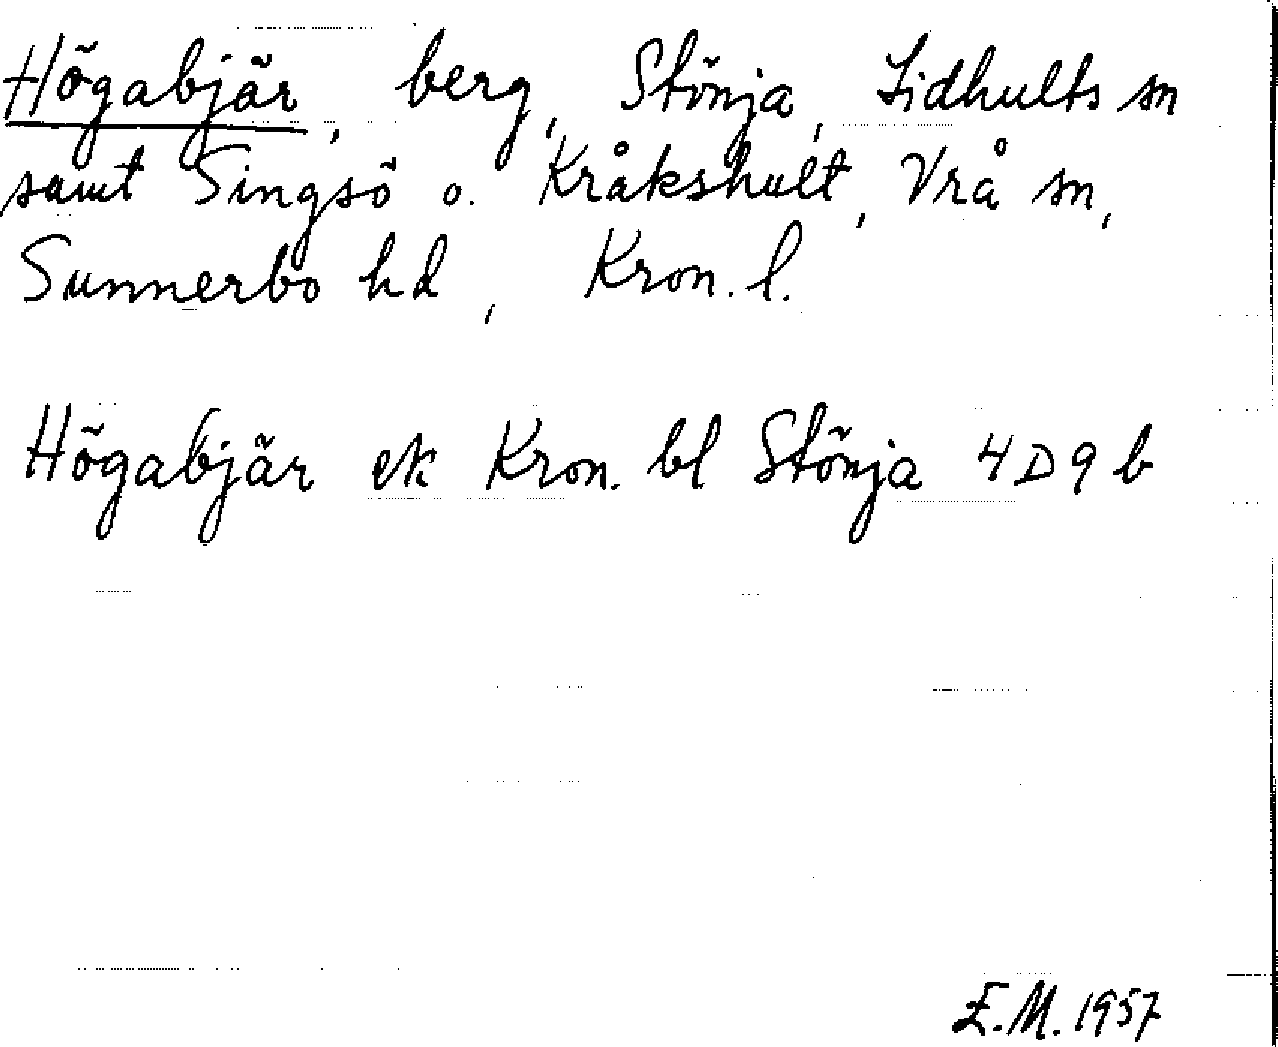 Högabjär, berg, Stönja, Lidhults sn
samt Singsö o. Kråkshult, Vrå sn,
Sunnerbo hd, Kron. l.
Högabjär ek Kron. bl Stönja 4D9b
E.M. 1957